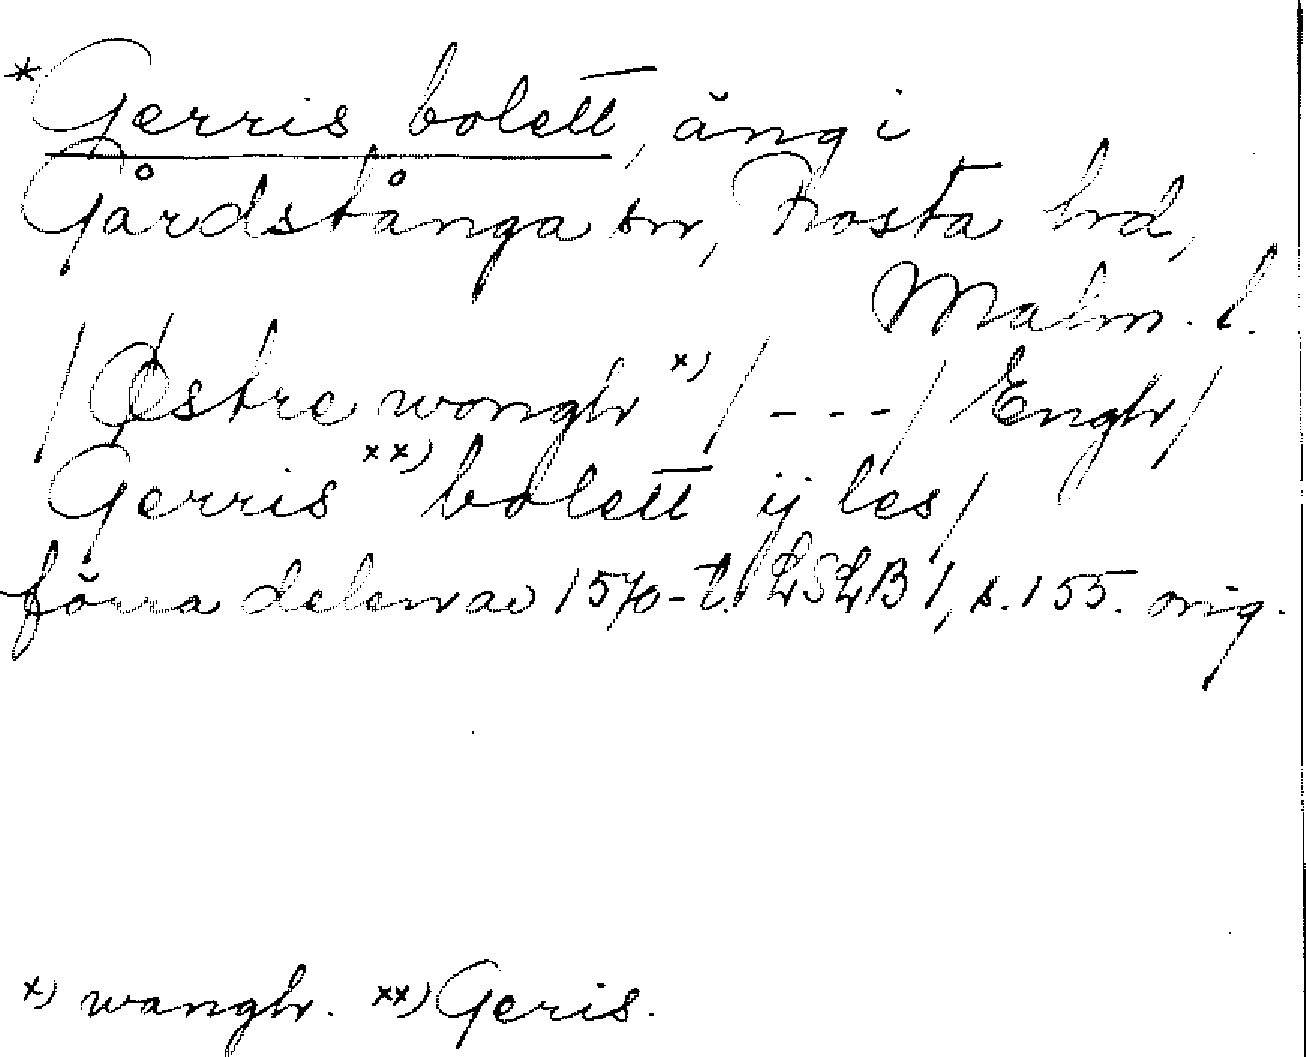 *Gerris bolett, äng i
Gårdstånga sn, Frosta hd,
Malm. l.
/Østre wongh x)/---/Engh/
Gerris xx) bolett ij les/
förra delen av 1570-t. LSLB 1, s. 155. orig.
x) wangh. xx) Geris.